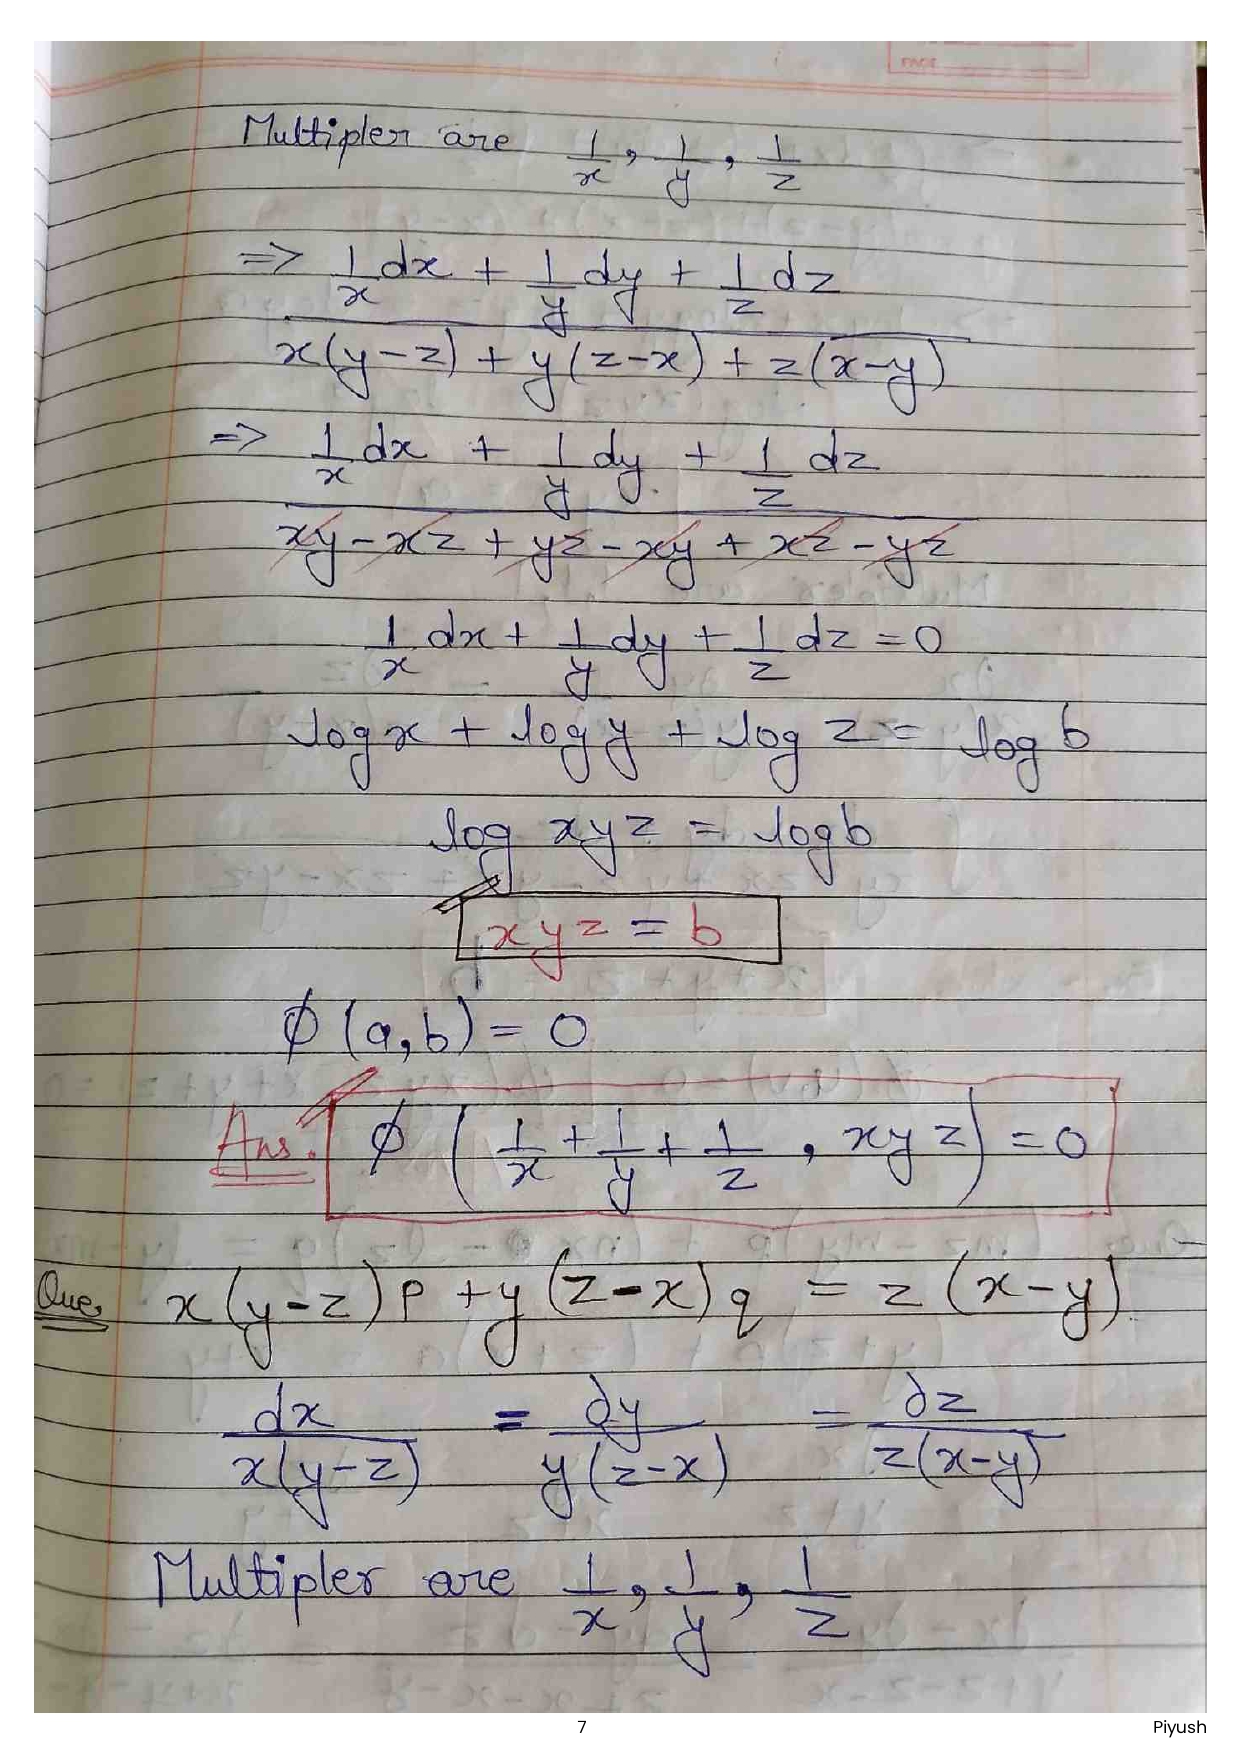 PAGE
Multipler are 1/x, 1/y, 1/z
=> 1/x dx + 1/y dy + 1/z dz
x(y-z) + y(z-x) + z(x-y)
=> 1/x dx + 1/y dy + 1/z dz
xy - xz + yz - xy + xz - yz
1/x dx + 1/y dy + 1/z dz = 0
log x + log y + log z = log b
log xyz = log b
xyz = b
ϕ (a,b) = 0
Ans. ϕ (1/x + 1/y + 1/z , xyz) = 0
Que. x(y-z)p + y(z-x)q = z(x-y)
dx/x(y-z) = dy/y(z-x) = dz/z(x-y)
Multipler are 1/x, 1/y, 1/z
7 Piyush